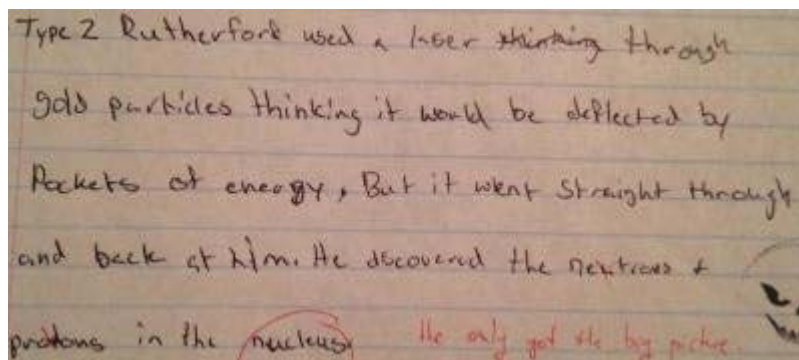 Type 2 Rutherford used a laser thinking through
gold particles thinking it would be deflected by
Pockets of energy, But it went straight through
and back at him. He discovered the neutrons +
protons in the nucleus. He only got the big picture.